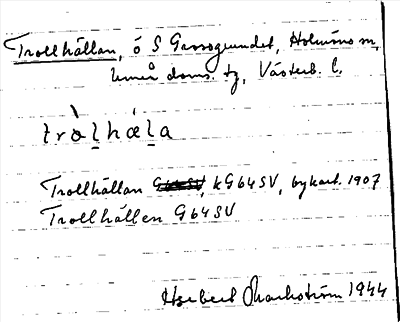 Trollhällan, ö S Grossgrundet, Holmöns sn,
Umeå doms. tg, Västerb. l.
tròl̲hál̲a
Trollhällan G64SV, kG64SV, bykart. 1907
Trollhällen G64SV
Herbert Markström 1944